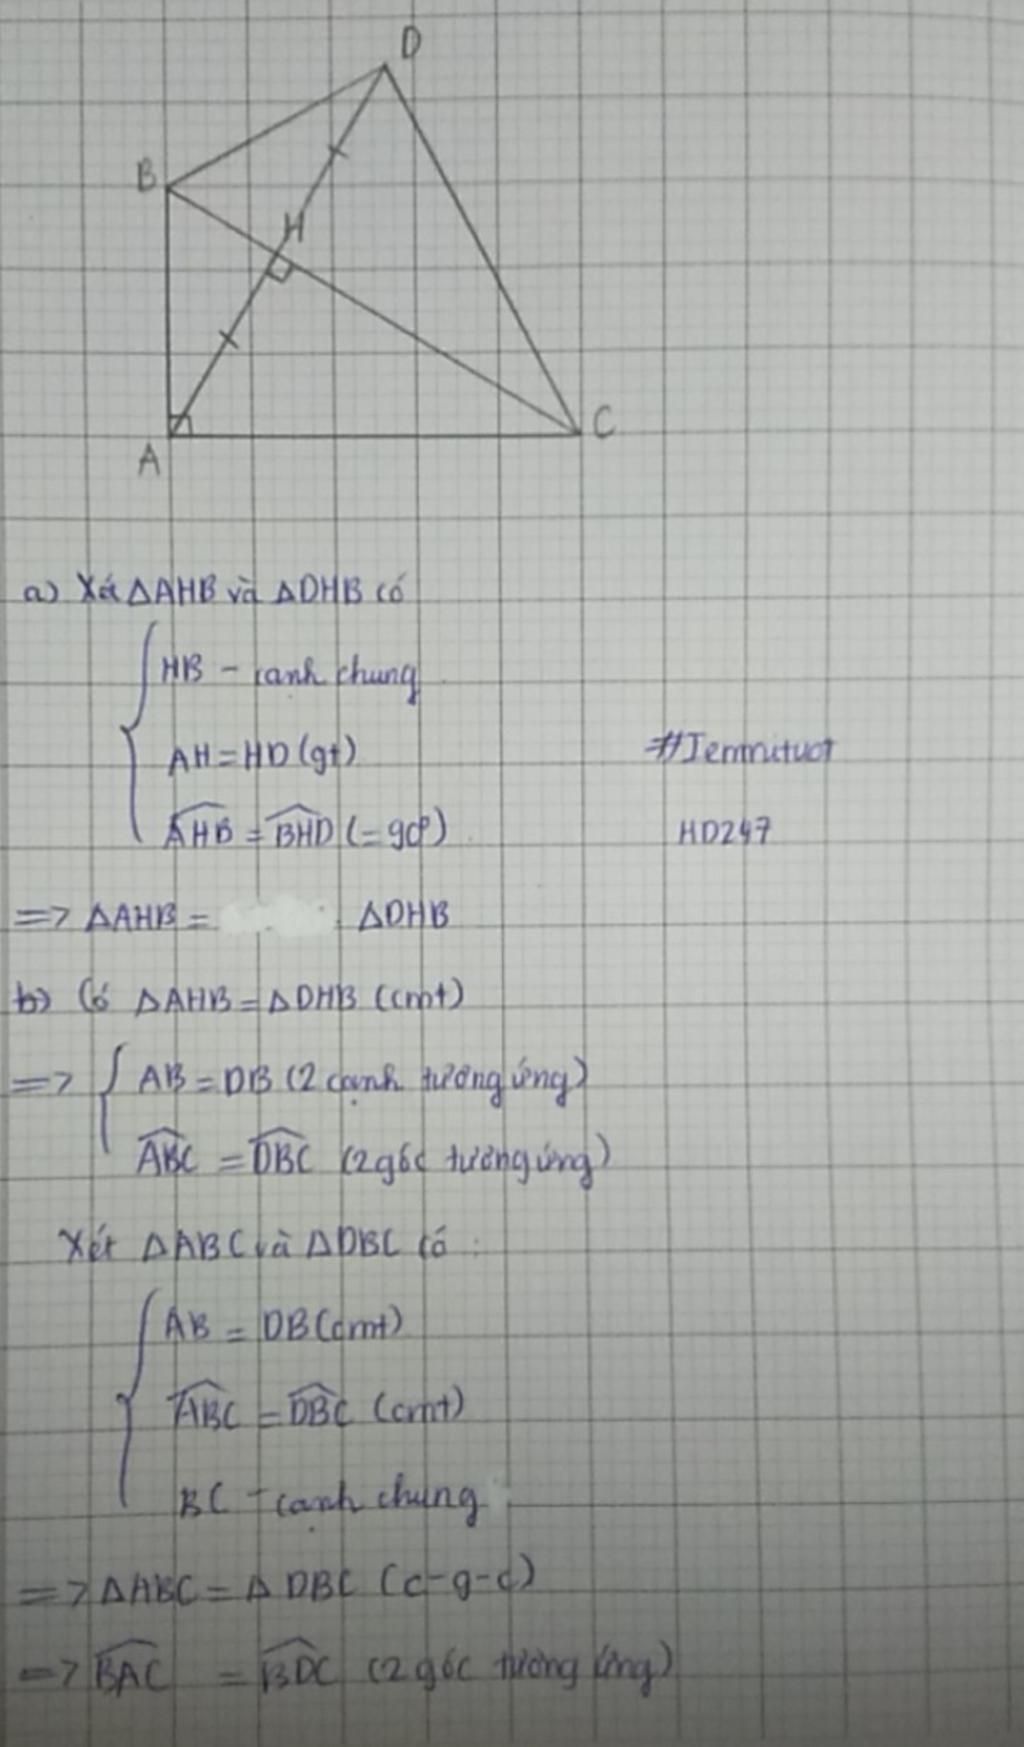 D
B
H
C
A
a) Xét ΔAHB và ΔDHB có
HB - cạnh chung
AH = HD (gt)
#Jemnituot
AHB = BHD (= 90°)
HD247
=> ΔAHB = ΔDHB
b) Có ΔAHB = ΔDHB (cmt)
=> AB = DB (2 cạnh tương ứng)
ABC = DBC (2 góc tương ứng)
Xét ΔABC và ΔDBC có :
AB = DB (cmt)
ABC = DBC (cmt)
BC - cạnh chung
=> ΔABC = ΔDBC (c-g-c)
=> BAC = BDC (2 góc tương ứng)